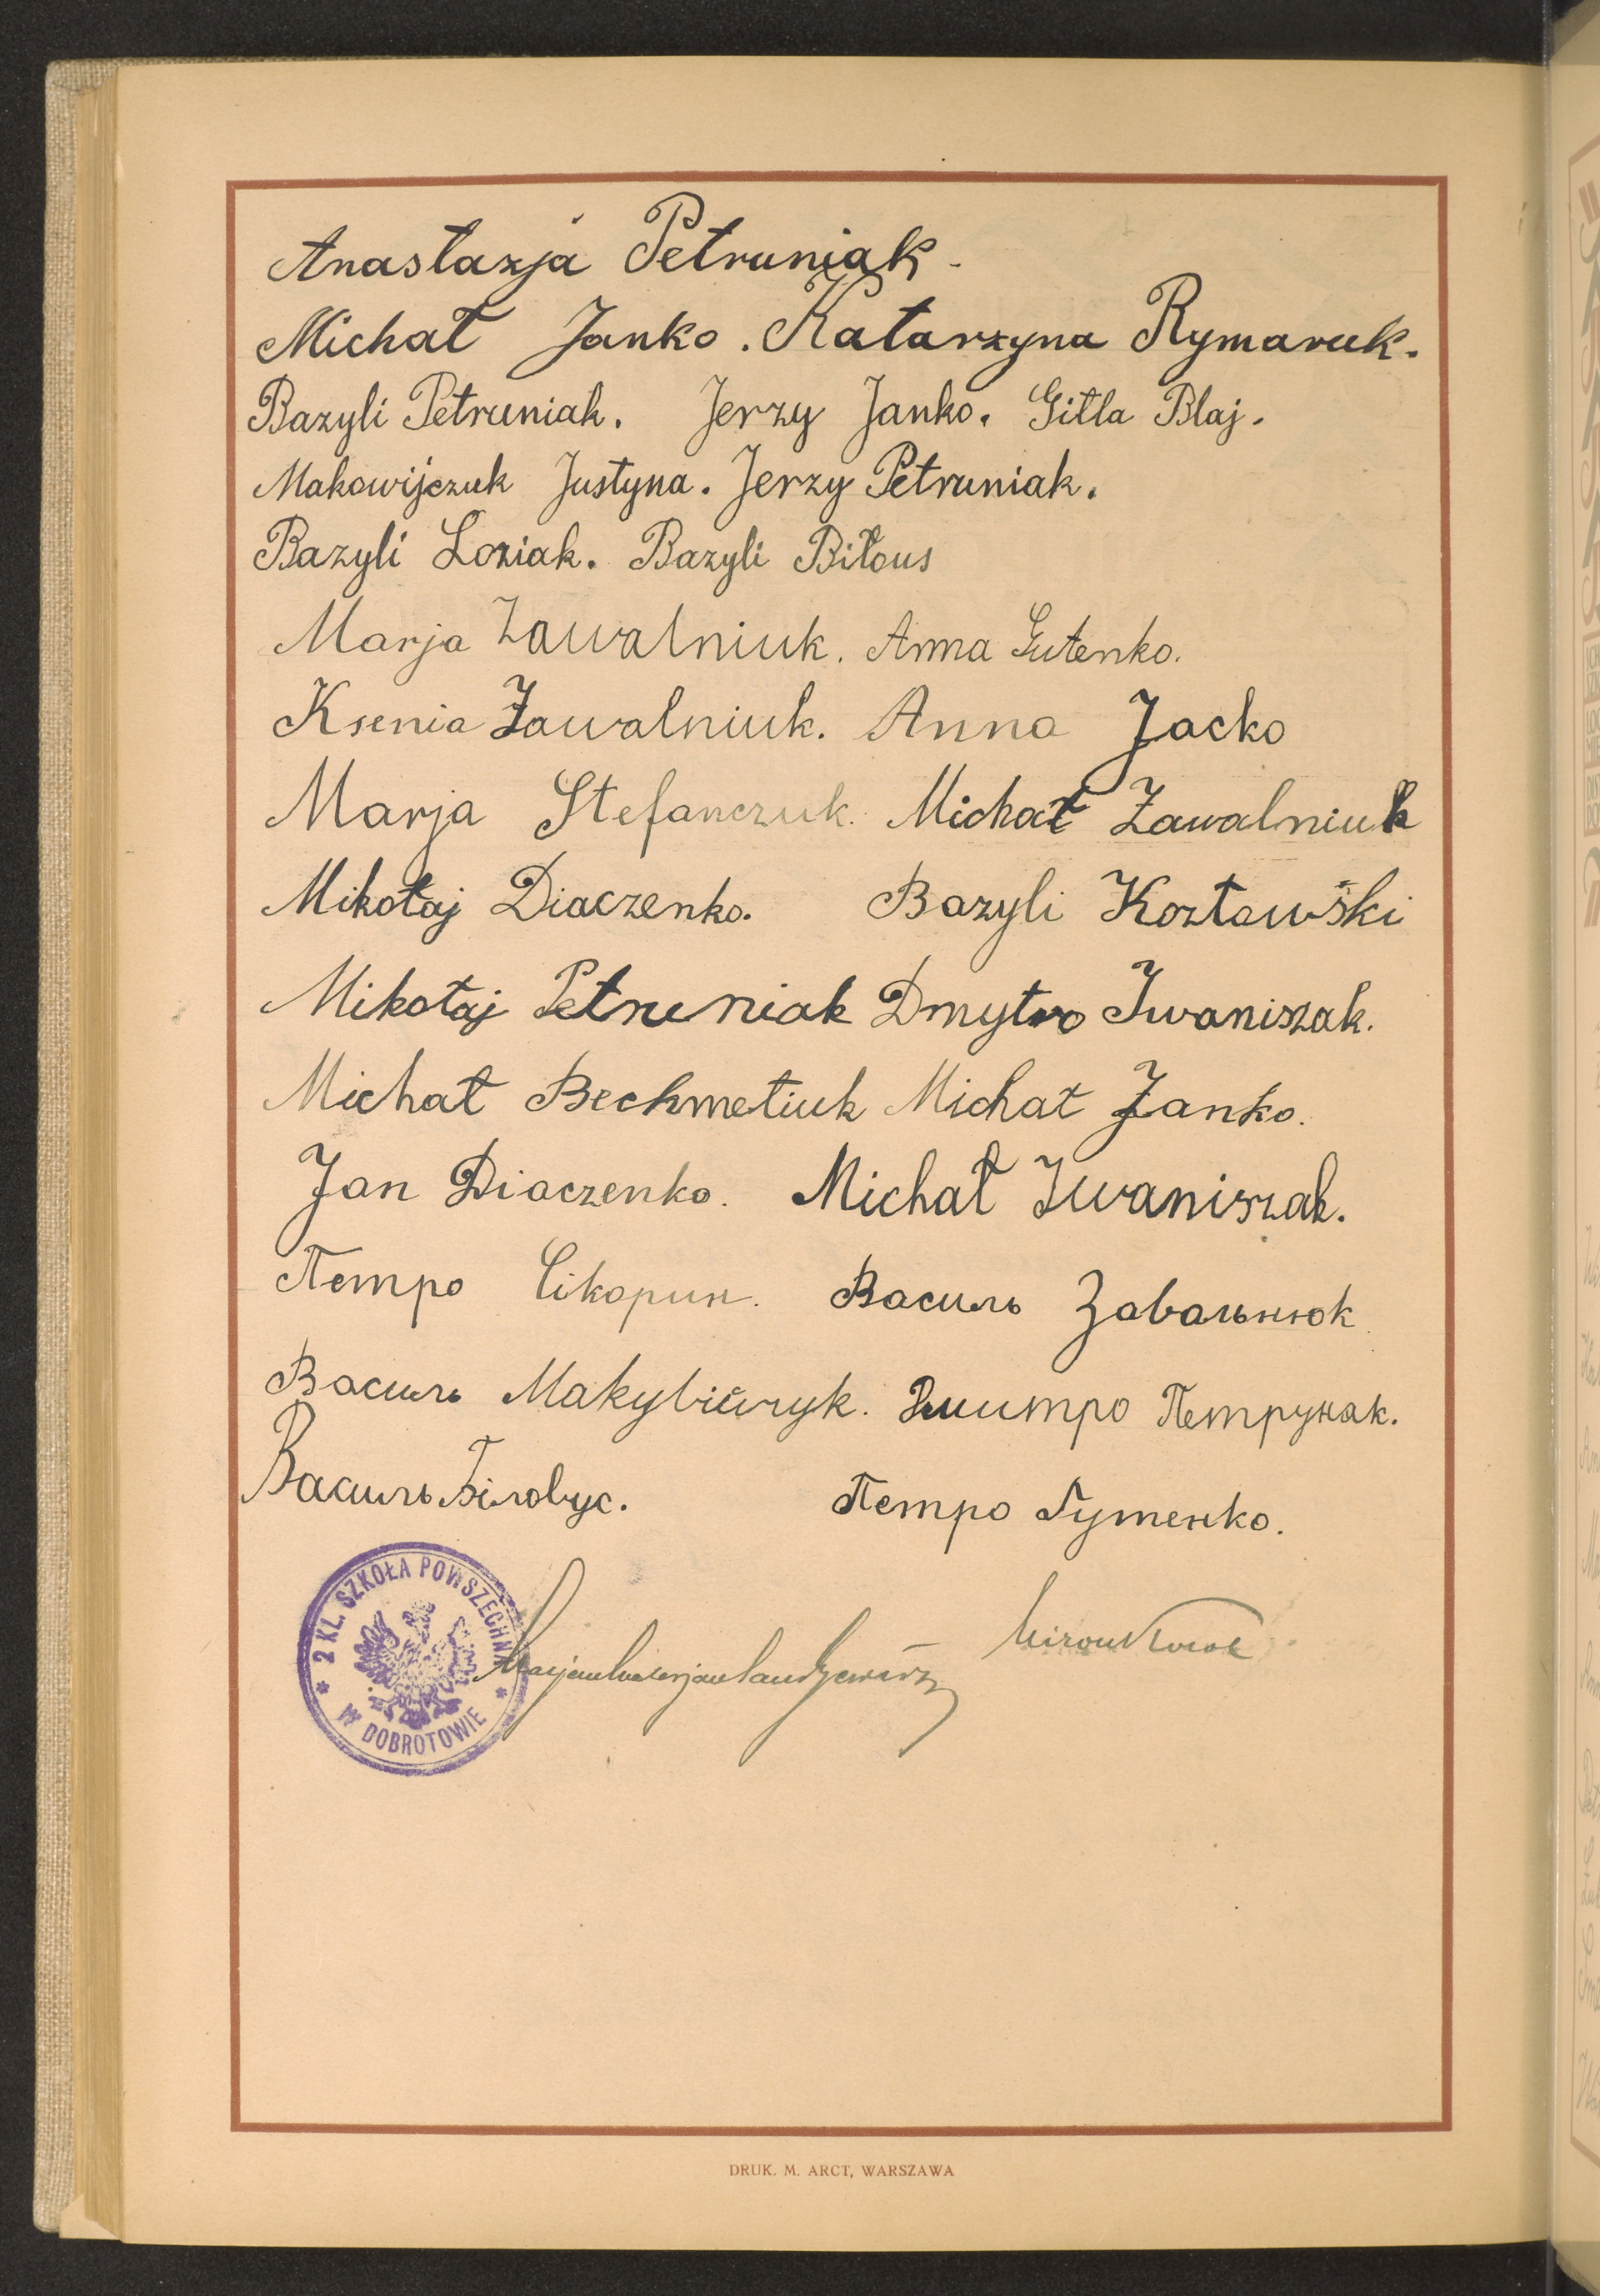 Anastazja Petruniak.
Michał Janko. Katarzyna Rymaruk.
Bazyli Petruniak. Jerzy Janko. Gitla Blaj.
Makowijczuk Justyna. Jerzy Petruniak.
Bazyli Loziak. Bazyli Biłous
Marja Zawalniuk. Anna Gutenko.
Ksenia Zawalniuk. Anna Jacko
Marja Stefanczuk. Michał Zawalniuk
Mikołaj Diaczenko. Bazyli Kozłowski
Mikołaj Petruniak Dmytro Iwaniszak.
Michał Bechmetiuk Michał Janko.
Jan Diaczenko. Michał Iwaniszak.
Петро Сікорин. Василь Завальнюк
Василь Дмитро Петруняк.
Василь Біловус. Петро Гутенко.
2 KL. SZKOŁA POWSZECHNA
W DOBROTOWIE
DRUK. M. ARCT, WARSZAWA